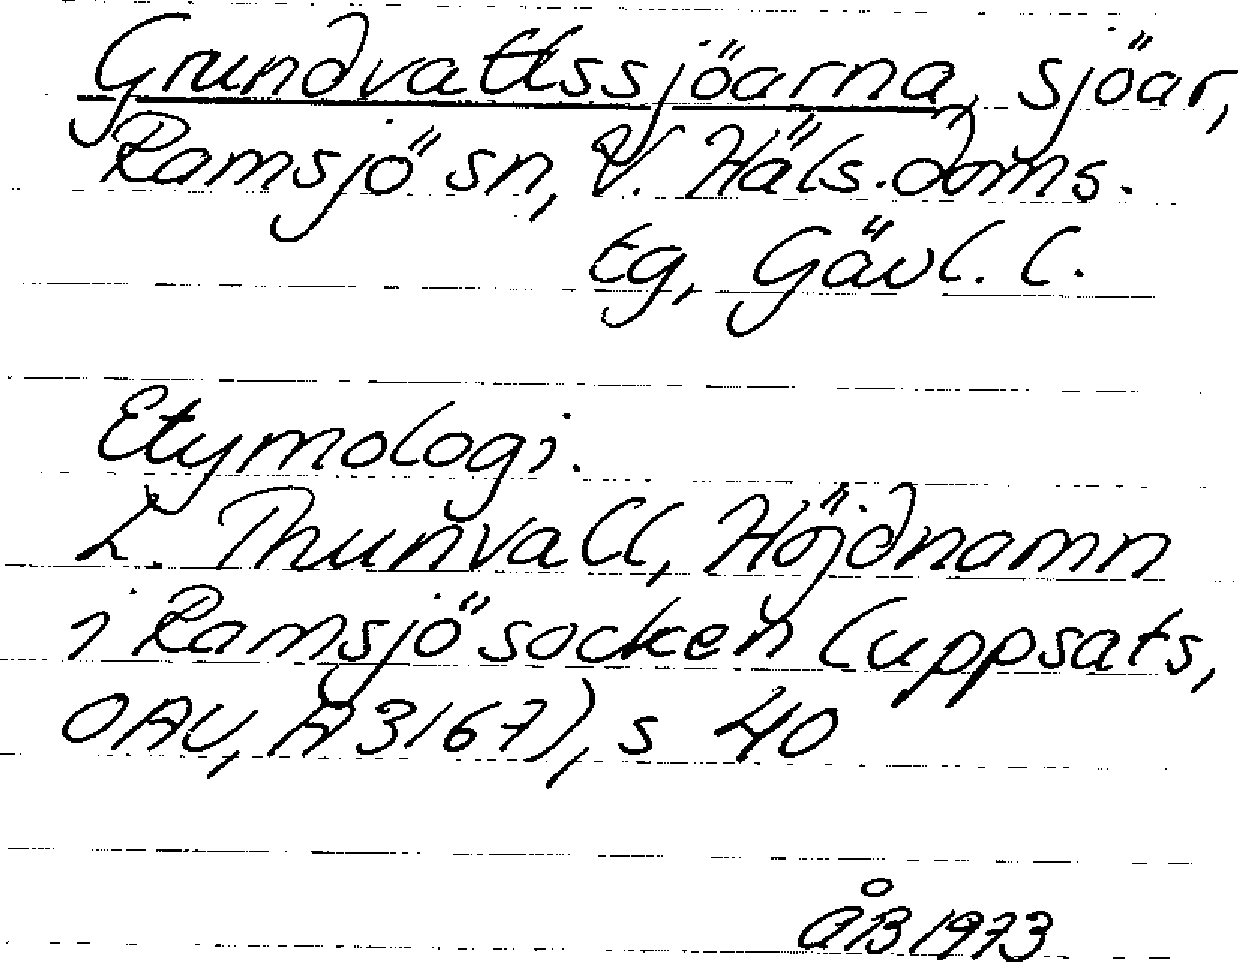 Grundvattssjöarna, sjöar,
Ramsjö sn, V. Häls. doms.
tg, Gävl. l.
Etymologi.
L. Thunvall, Höjdnamn
i Ramsjö socken (uppsats,
OAU, A 3167), s 40
ÅB 1973